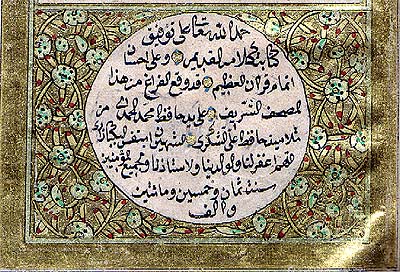 حمدا لله تعالى على توفيق
كتابة كلامه القديم وعلى احسان
اتمام قرآن العظيم قد وقع الفراغ من هذا
المصحف الشريف على يد حافظ محمد الحمدي من
تلاميذ حافظ على الشكري الشهير
اللهم اغفر لنا ولوالدينا ولاستاذنا ولجميع المؤمنين
سنة ثمان وخمسين ومأتين
والف